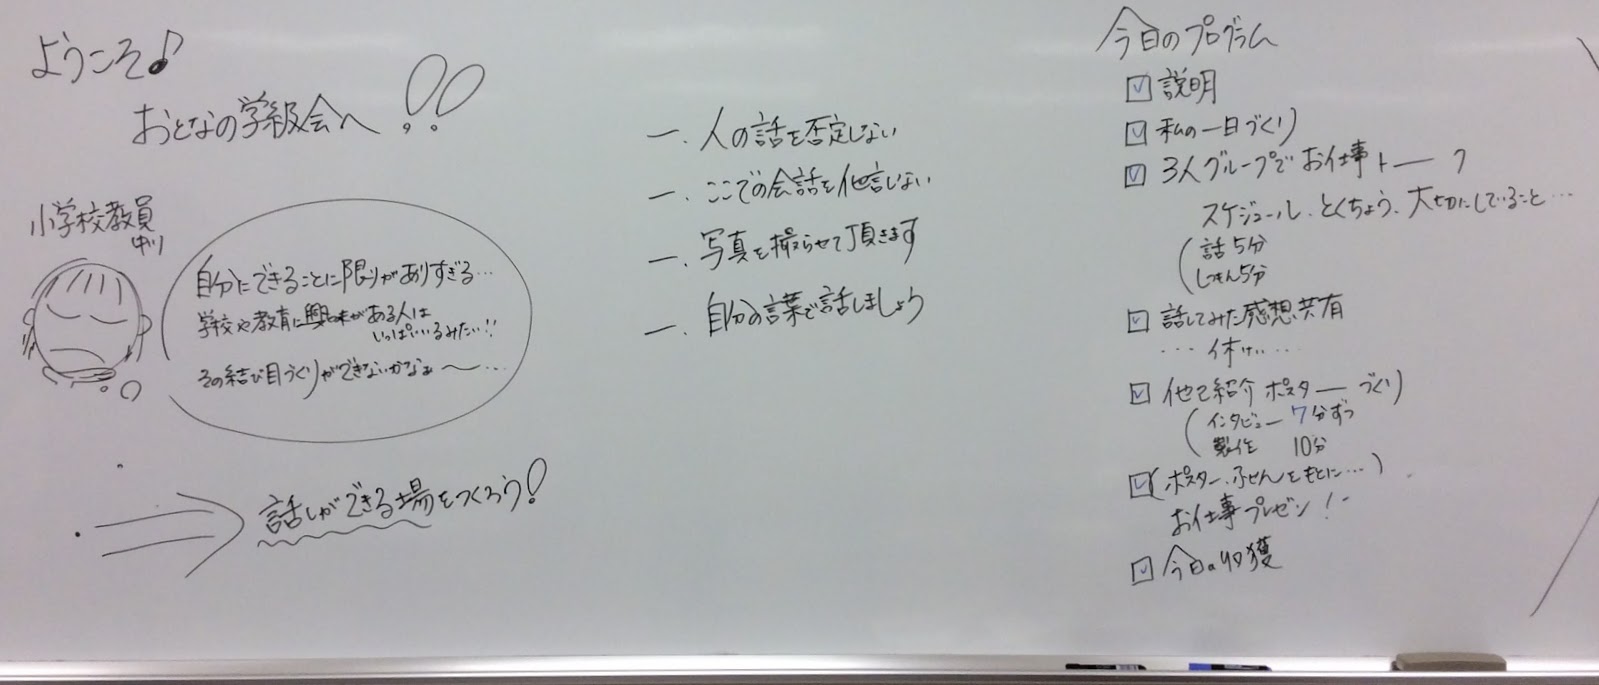 ようこそ♪
おとなの学級会へ!!
小学校教員
自分にできることに限りがありすぎる…
学校や教育に興味がある人は
いっぱいいるみたい!!
その結び目づくりができないかなぁ〜…
話しができる場をつくろう!
一. 人の話を否定しない
一. ここでの会話を他言しない
一. 写真を撮らせて頂きます
一. 自分の言葉で話しましょう
今日のプログラム
☑ 説明
☑ 私の一日づくり
☑ 3人グループでお仕事トーク
スケジュール、とくちょう、大切にしていること…
(話5分
しつもん5分
☑ 話してみた感想共有
… 休けい …
☑ 他己紹介ポスターづくり
(インタビュー 7分ずつ
製作 10分
☑ (ポスター、ふせんをもとに…)
お仕事プレゼン!
☑ 今日の収獲